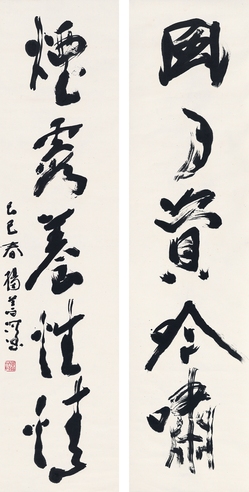 風月賞吟嘯
煙霞養性情
己巳春楊善深